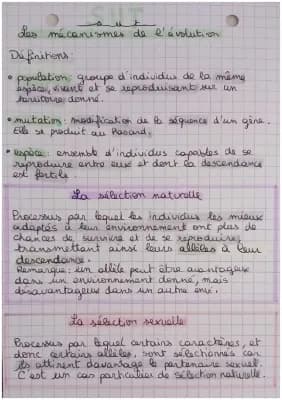 SVT
Les mécanismes de l'évolution
Définitions:
• population: groupe d'individus de la même
espèce, vivent et se reproduisant sur un
territoire donné.
• mutation: modification de la séquence d'un gène.
Elle se produit au hasard.
• espèce: ensemble d'individus capables de se
reproduire entre eux et dont la descendance
est fertile.
La sélection naturelle
Processus par lequel les individus les mieux
adaptés à leur environnement ont plus de
chances de survivre et de se reproduire,
transmettant ainsi leurs allèles à leur
descendance.
Remarque: un allèle peut être avantageux
dans un environnement donné, mais
désavantageux dans un autre env.
La sélection sexuelle
Processus par lequel certains caractères, et
donc certains allèles, sont sélectionnés car
ils attirent davantage le partenaire sexuel.
C'est un cas particulier de sélection naturelle.